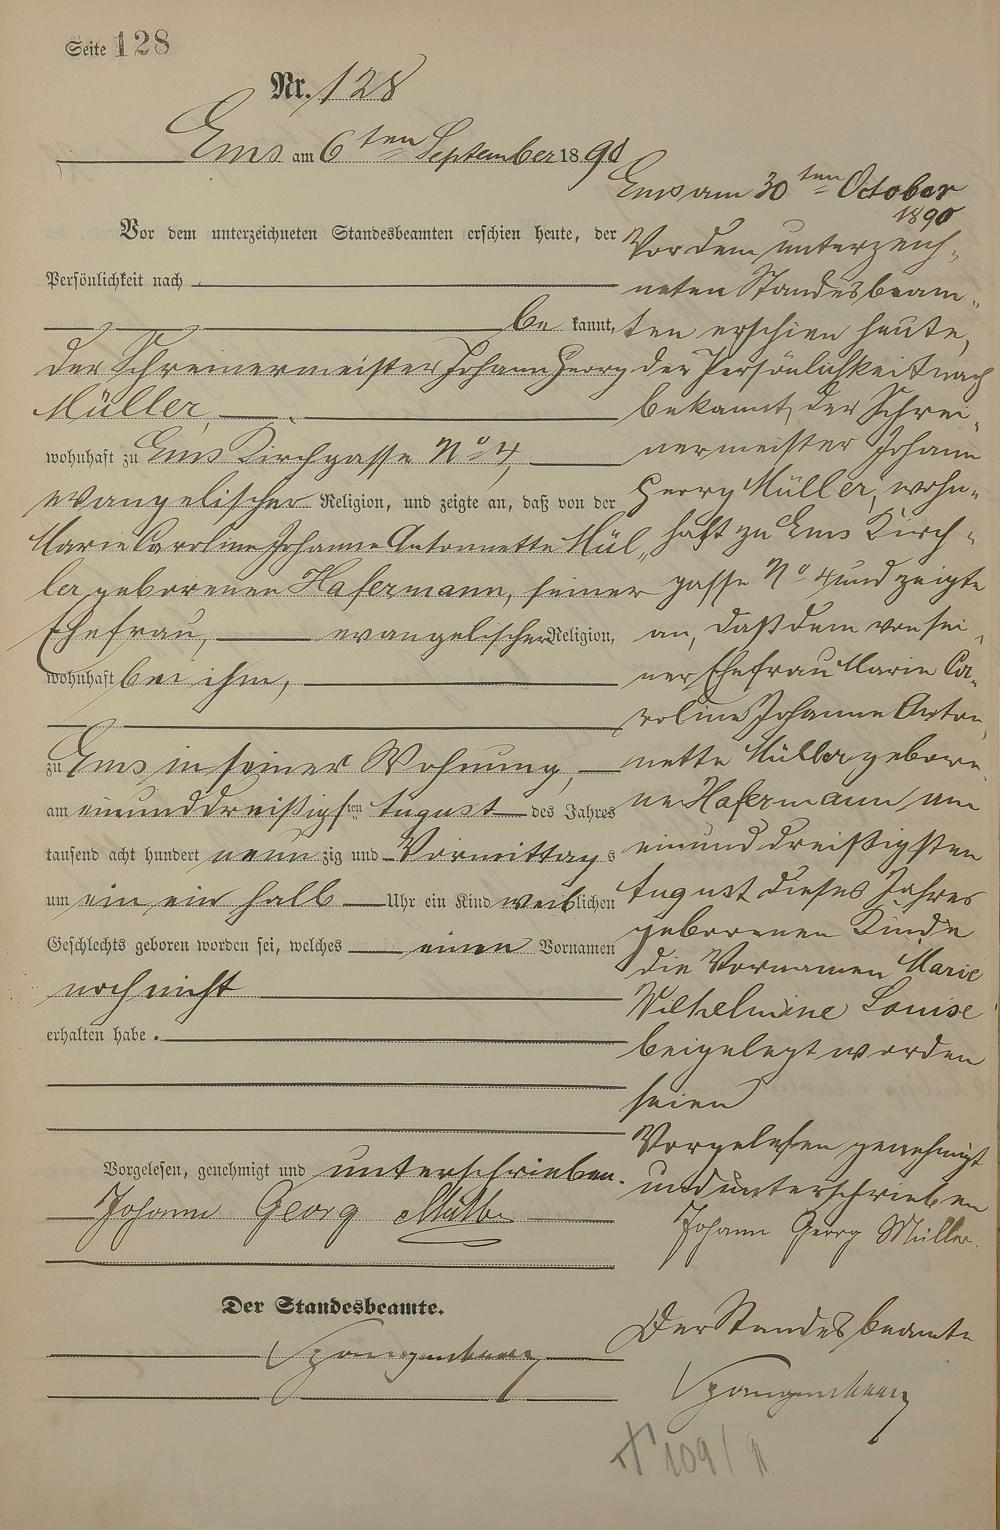 Seite 128
Nr. 128
Ems am 6ten September 1890
Vor dem unterzeichneten Standesbeamten erschien heute, der
Persönlichkeit nach
be kannt,
der Schreinermeister Johann Georg
Müller,
wohnhaft zu Ems Kirchgasse No 4,
evangelischer Religion, und zeigte an, daß von der
Marie Caroline Johanne Antonnette Mül„
ler geborenen Hafermann, seiner
Ehefrau, evangelischer Religion,
wohnhaft bei ihm,
zu Ems in seiner Wohnung,
am einunddreißigsten August des Jahres
tausend acht hundert neunzig und Vormittags
um ein ein halb Uhr ein Kind weiblichen
Geschlechts geboren worden sei, welches einen Vornamen
noch nicht
erhalten habe.
Vorgelesen, genehmigt und unterschrieben.
Johann Georg Müller
Der Standesbeamte.
Ems am 30ten October
1890
Vor dem unterzeich„
neten Standesbeam„
ten erschien heute,
der Persönlichkeit nach
bekannt, der Schrei„
nermeister Johann
Georg Müller, wohn„
haft zu Ems Kirch„
gasse No 4 und zeigte
an, daß dem von sei„
ner Ehefrau Marie Ca„
roline Johanne Anton„
nette Müller gebore„
ne Hafermann, am
einunddreißigsten
August dieses Jahres
geborenen Kinde
die Vornamen Marie
Wilhelmine Louise
beigelegt worden
seien
Vorgelesen genehmigt
und unterschrieben
Johann Georg Müller.
Der Standesbeamte
109/9